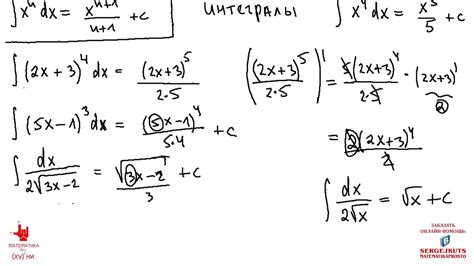 ∫xⁿdx = xⁿ⁺¹/(n+1) + c
интегралы
∫x⁴dx = x⁵/5 + c
∫(2x+3)⁴dx = (2x+3)⁵/(2·5)
((2x+3)⁵/(2·5))' = 5(2x+3)⁴/(2·5) · (2x+3)'
2
∫(5x-1)³dx = (5x-1)⁴/(5·4) + c
= 2(2x+3)⁴/2
∫dx/(2√(3x-2)) = √(3x-2)/3 + c
∫dx/(2√x) = √x + c
МАТЕМАТИКА
(ху)'ни
ЗАКАЗАТЬ
ОНЛАЙН-ПОМОЩЬ:
SERGEJKUTS
MATEMATIKAPROSTO